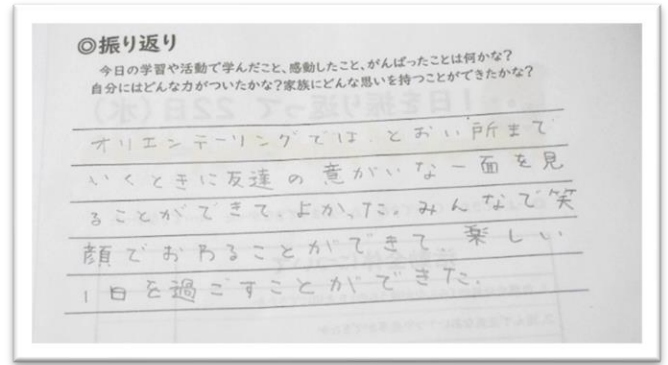 ◎振り返り
今日の学習や活動で学んだこと、感動したこと、がんばったことは何かな?
自分にはどんな力がついたかな?家族にどんな思いを持つことができたかな?
オリエンテーリングでは、とおい所まで
いくときに友達の意がいな一面を見
ることができてよかった。みんなで笑
顔でおわることができて、楽しい
1日を過ごすことができた。